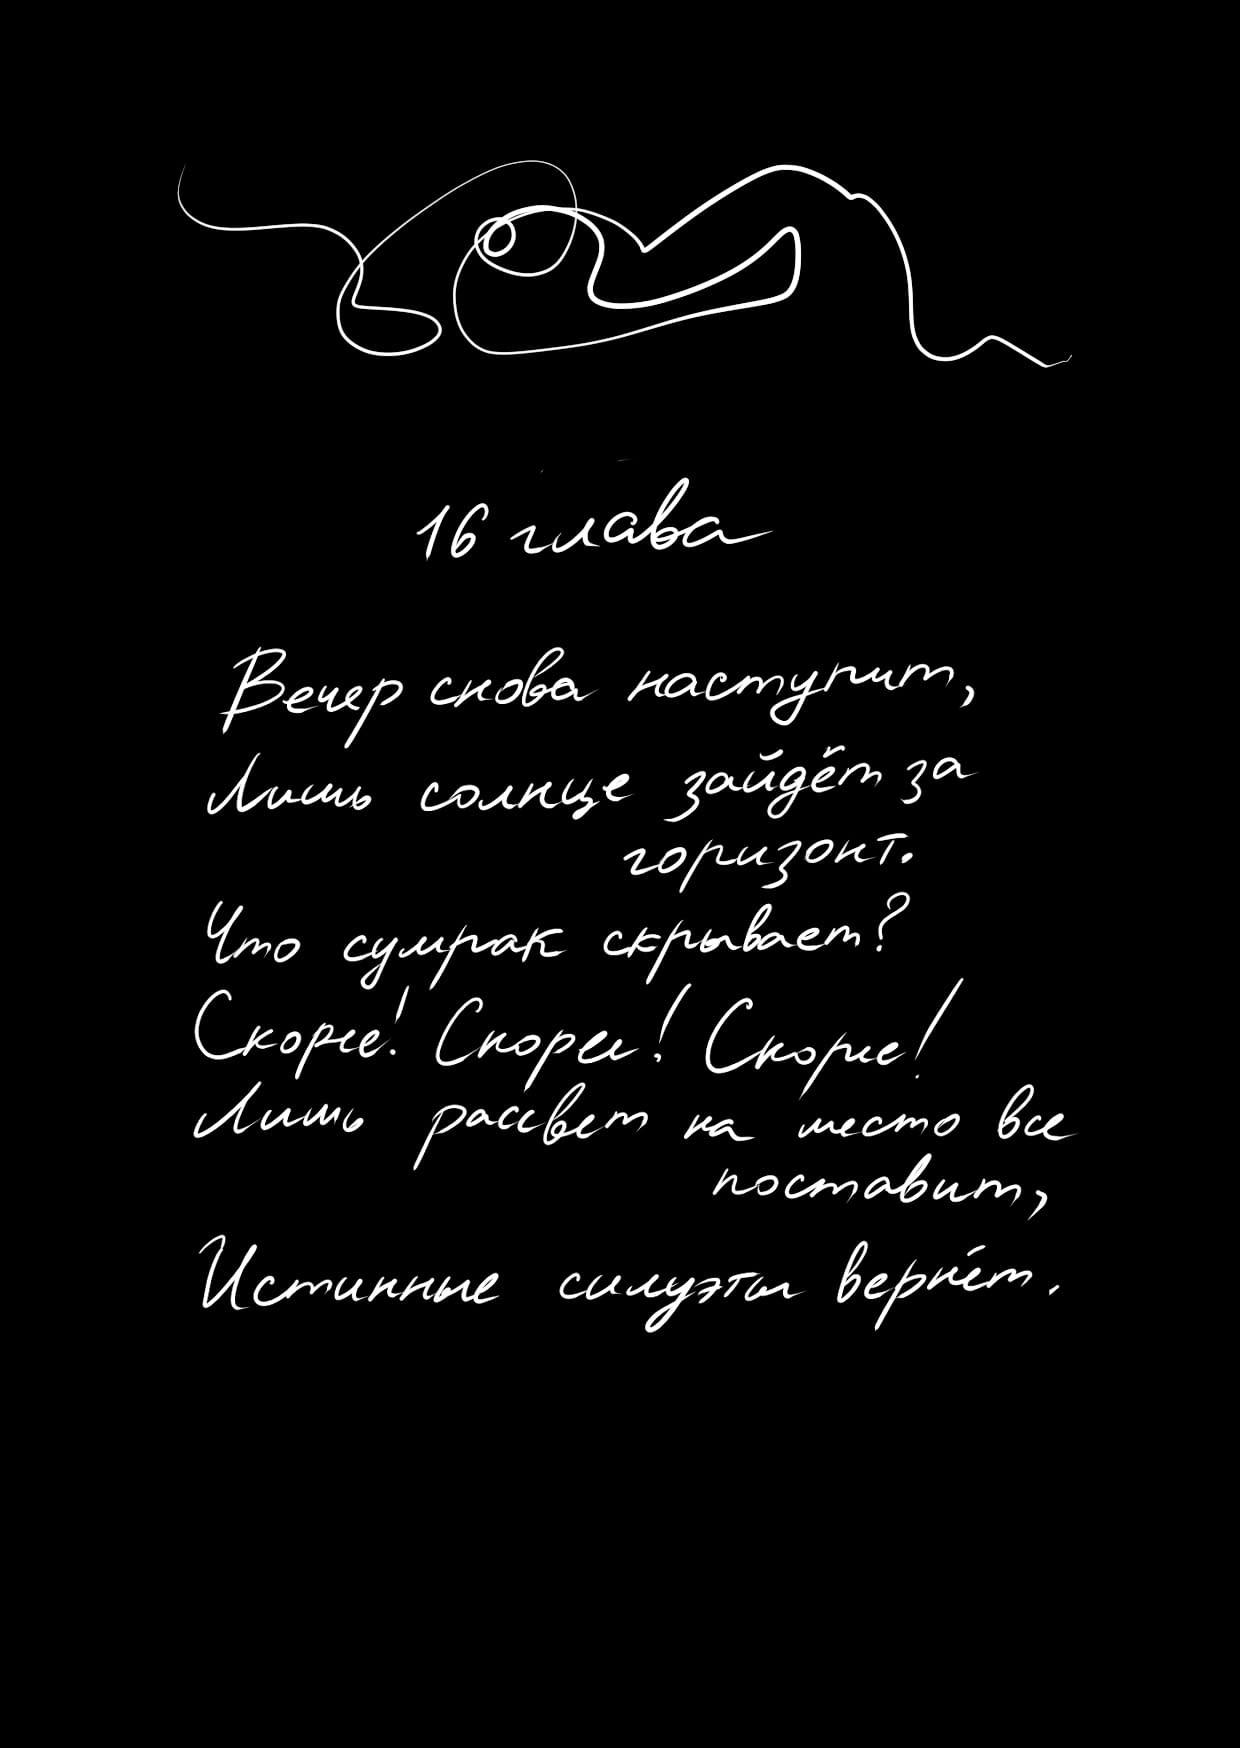 16 глава
Вечер снова наступит,
Лишь солнце зайдёт за
горизонт.
Что сумрак скрывает?
Скорее! Скорее! Скорее!
Лишь рассвет на место все
поставит,
Истинные силуэты вернёт.